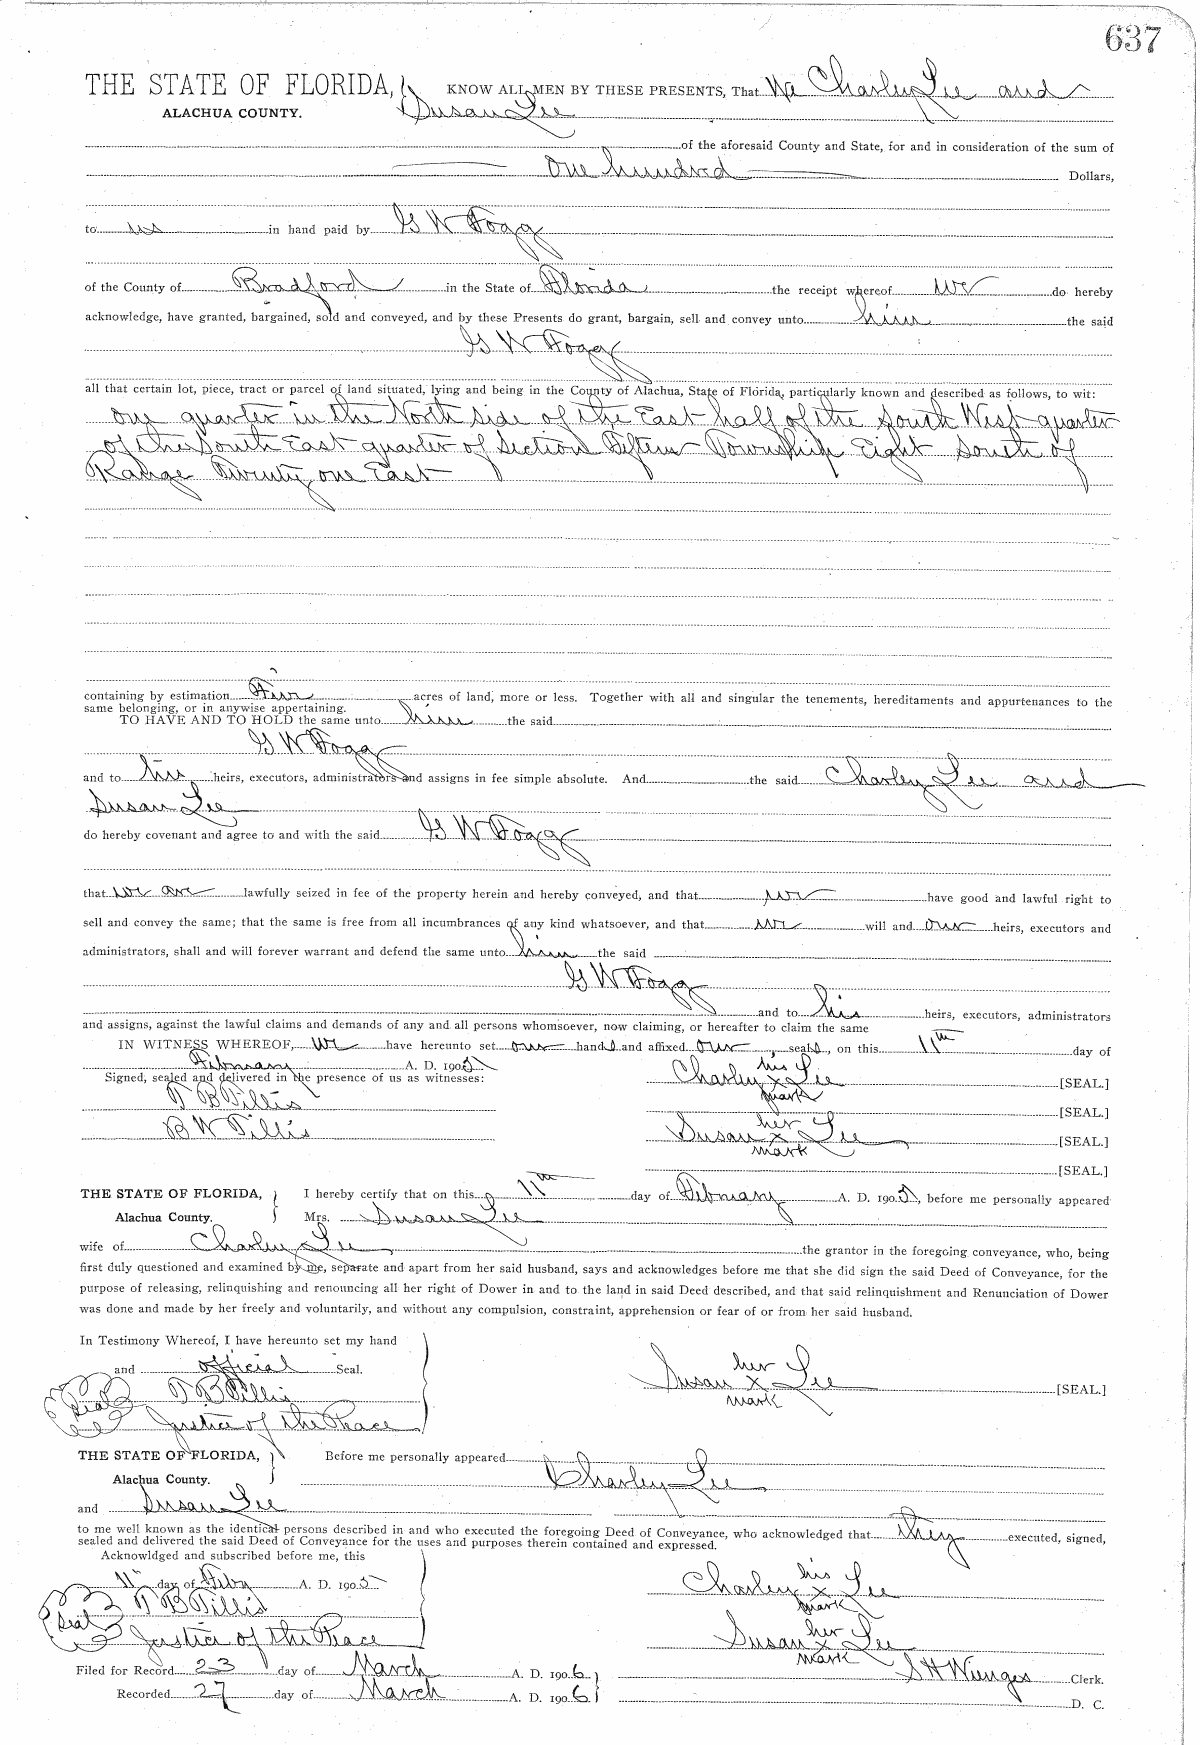 637
THE STATE OF FLORIDA, KNOW ALL MEN BY THESE PRESENTS, That We Charley Lee and
ALACHUA COUNTY. Susan Lee
of the aforesaid County and State, for and in consideration of the sum of
One hundred Dollars,
to us in hand paid by G W Fogg
of the County of Bradford in the State of Florida the receipt whereof we do hereby
acknowledge, have granted, bargained, sold and conveyed, and by these Presents do grant, bargain, sell and convey unto him the said
G W Fogg
all that certain lot, piece, tract or parcel of land situated, lying and being in the County of Alachua, State of Florida, particularly known and described as follows, to wit:
One quarter in the North side of the East half of the South West quarter
of the South East quarter of Section Fifteen Township Eight South of
Range Twenty one East
containing by estimation Five acres of land, more or less. Together with all and singular the tenements, hereditaments and appurtenances to the
same belonging, or in anywise appertaining.
TO HAVE AND TO HOLD the same unto him the said
G W Fogg
and to his heirs, executors, administrators and assigns in fee simple absolute. And the said Charley Lee and
Susan Lee
do hereby covenant and agree to and with the said G W Fogg
that we are lawfully seized in fee of the property herein and hereby conveyed, and that we have good and lawful right to
sell and convey the same; that the same is free from all incumbrances of any kind whatsoever, and that we will and our heirs, executors and
administrators, shall and will forever warrant and defend the same unto him the said
G W Fogg
and to his heirs, executors, administrators
and assigns, against the lawful claims and demands of any and all persons whomsoever, now claiming, or hereafter to claim the same
IN WITNESS WHEREOF, we have hereunto set our hands and affixed our seals, on this 11th day of
February A. D. 1905
Signed, sealed and delivered in the presence of us as witnesses:
his
Charley x Lee [SEAL.]
mark
T B Tillis [SEAL.]
her
B W Tillis Susan x Lee [SEAL.]
mark
[SEAL.]
THE STATE OF FLORIDA, I hereby certify that on this 11th day of February A. D. 1905, before me personally appeared
Alachua County. Mrs. Susan Lee
wife of Charley Lee the grantor in the foregoing conveyance, who, being
first duly questioned and examined by me, separate and apart from her said husband, says and acknowledges before me that she did sign the said Deed of Conveyance, for the
purpose of releasing, relinquishing and renouncing all her right of Dower in and to the land in said Deed described, and that said relinquishment and Renunciation of Dower
was done and made by her freely and voluntarily, and without any compulsion, constraint, apprehension or fear of or from her said husband.
In Testimony Whereof, I have hereunto set my hand
and official Seal. her
Seal T B Tillis Susan x Lee [SEAL.]
mark
Justice of the Peace
THE STATE OF FLORIDA, Before me personally appeared
Alachua County. Charley Lee
and Susan Lee
to me well known as the identical persons described in and who executed the foregoing Deed of Conveyance, who acknowledged that they executed, signed,
sealed and delivered the said Deed of Conveyance for the uses and purposes therein contained and expressed.
Acknowldged and subscribed before me, this
his
11" day of Feby A. D. 1905 Charley x Lee
mark
Seal T B Tillis
her
Justice of the Peace Susan x Lee
mark
Filed for Record 23 day of March A. D. 1906 S H Wienges Clerk.
Recorded 27 day of March A. D. 1906 D. C.